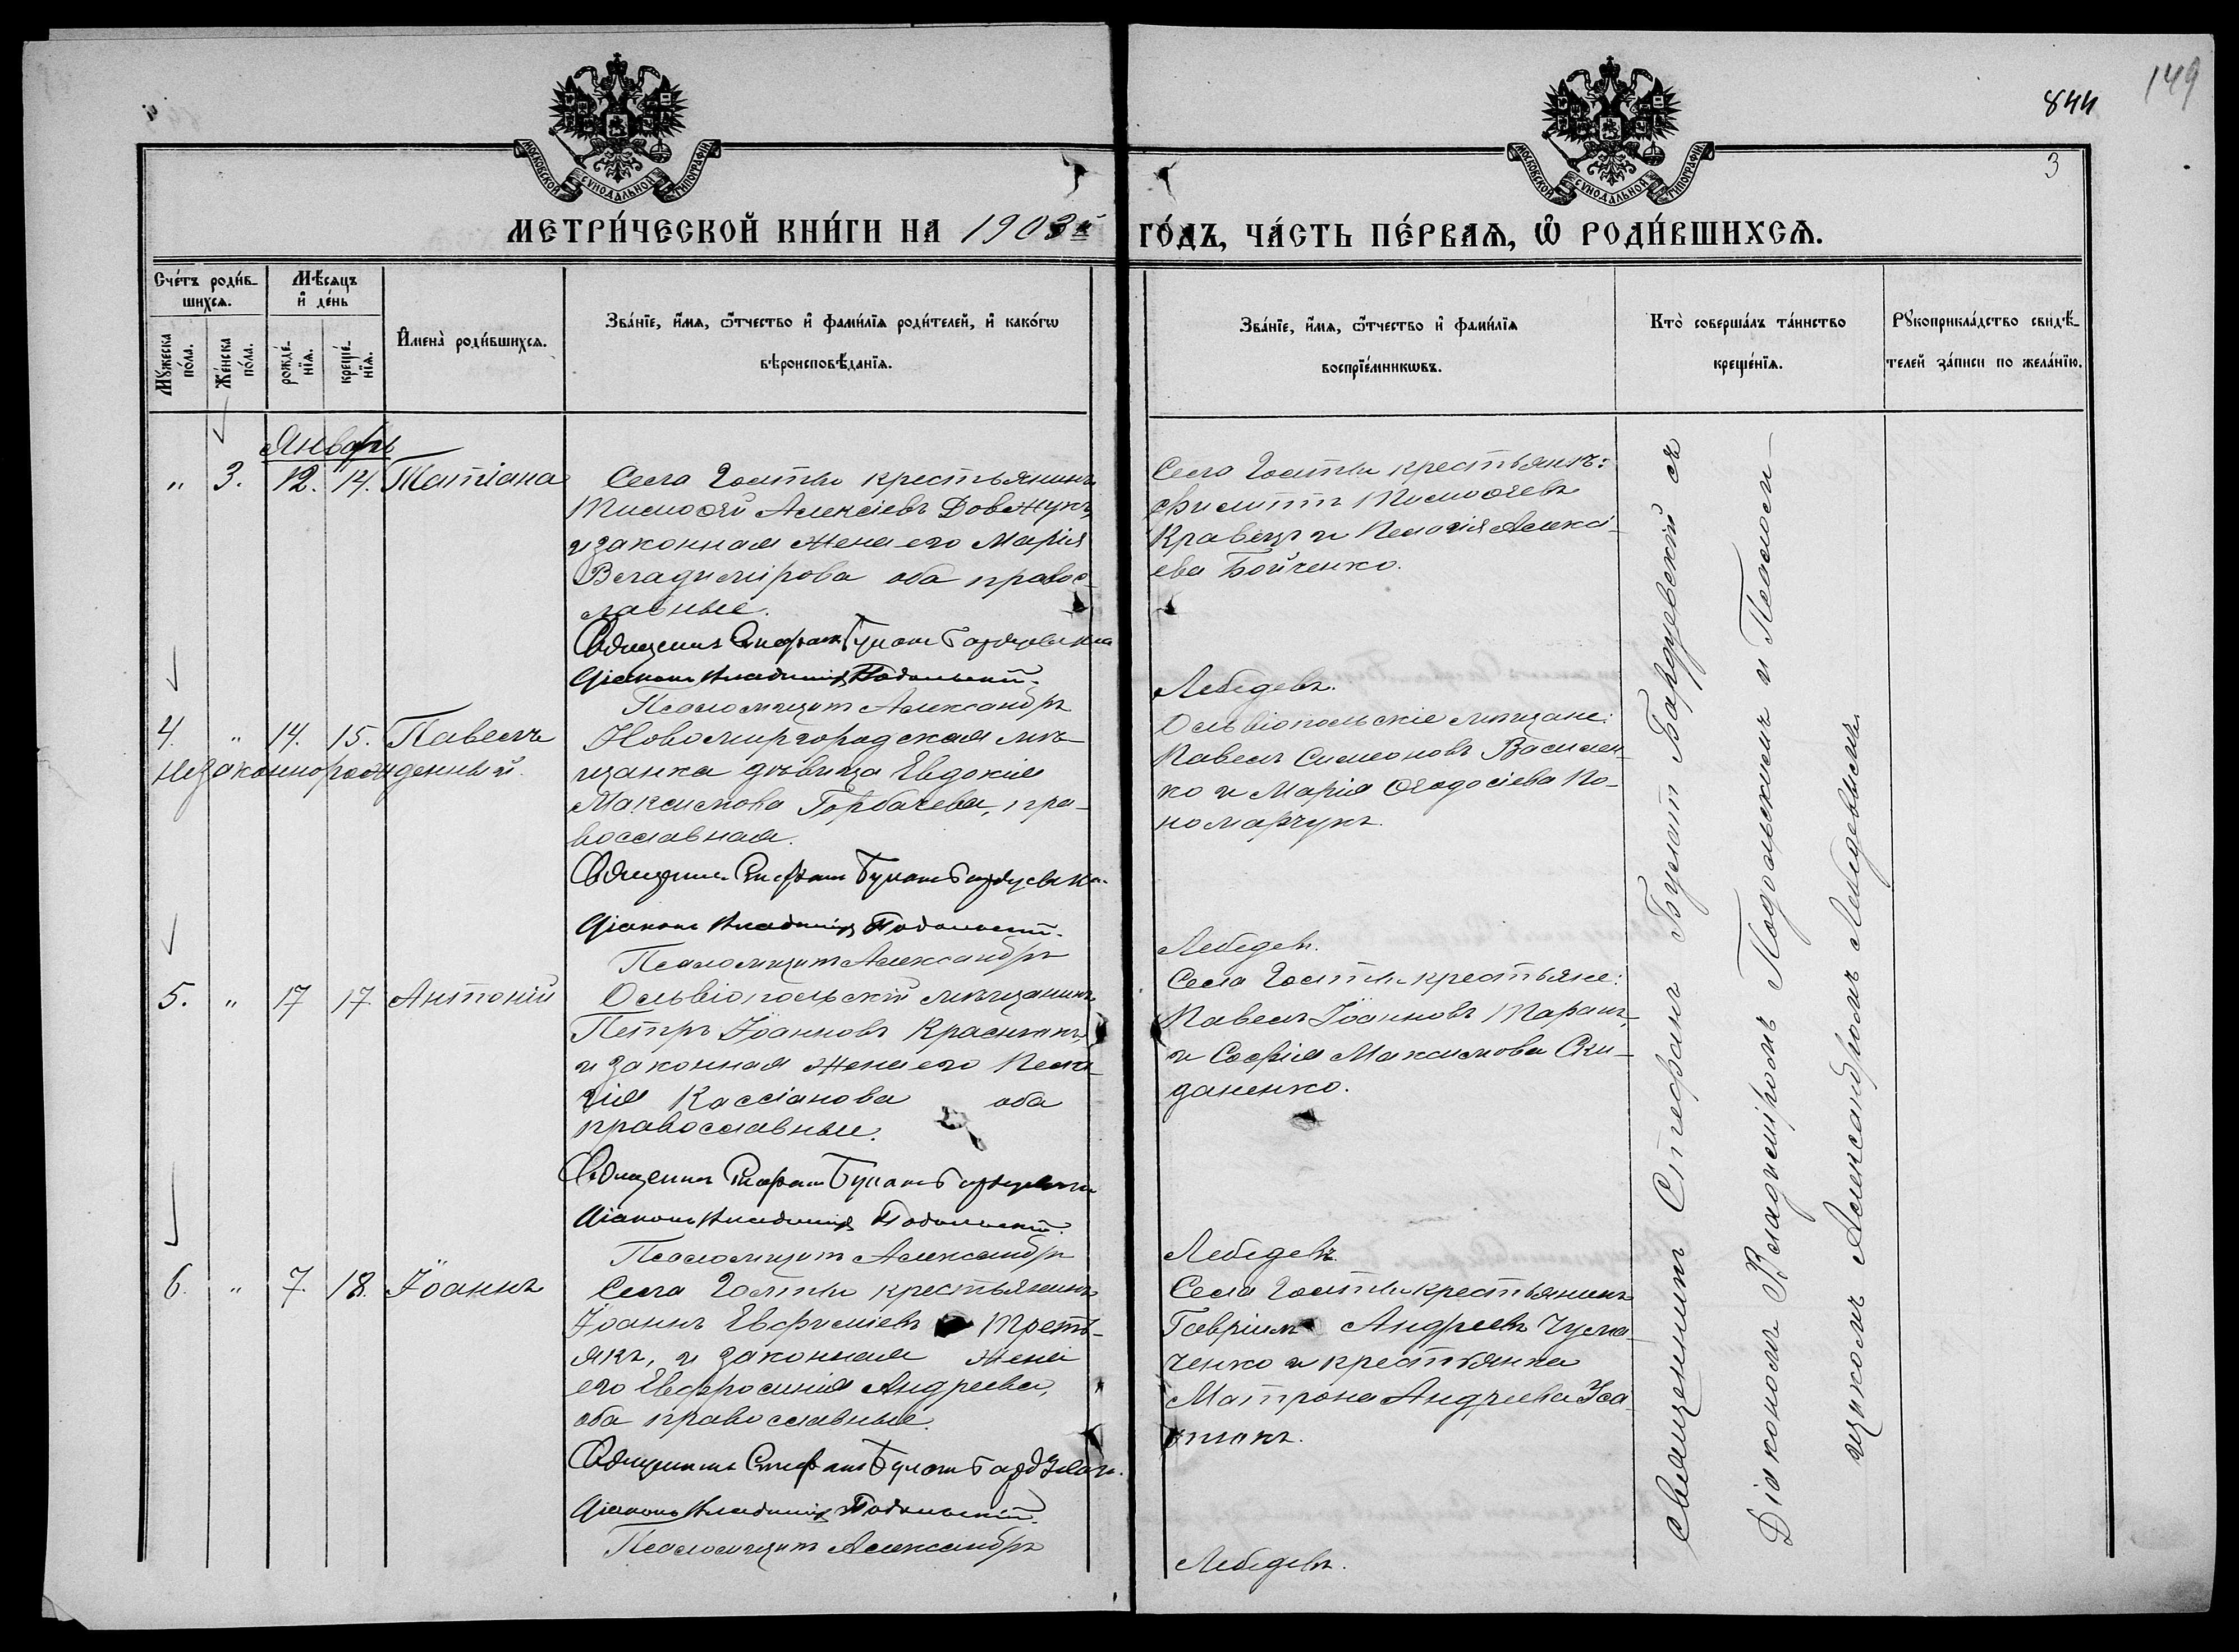 149
844
3
МОСКОВСКОЙ СУНОДАЛЬНОЙ ТИПОГРАФІИ
МОСКОВСКОЙ СУНОДАЛЬНОЙ ТИПОГРАФІИ
МЕТРИ́ЧЕСКОЙ КНИ́ГИ НА 1903й ГО́ДЪ, ЧА́СТЬ ПЕ́РВАѦ, Ѡ҆ РОДИ́ВШИХСѦ.
Сче́тъ роди́в-
шихсѧ.
Мꙋ́жеска
по́ла.
Же́нска
по́ла.
Мѣ́сѧцъ
и҆ де́нь
рожде́-
нїѧ.
креще́-
нїѧ.
И҆мена̀ роди́вшихсѧ.
Зва́нїе, и҆́мѧ, ѻ҆́тчество и҆ фами́лїѧ роди́телей, и҆ како́гѡ
вѣроисповѣ́данїѧ.
Зва́нїе, и҆́мѧ, ѻ҆́тчество и҆ фами́лїѧ
воспрїе́мникѡвъ.
Кто̀ соверша́лъ та́инство
креще́нїѧ.
Рꙋкоприкла́дство свидѣ́-
телей за́писи по жела́нїю.
Январь
„ 3. 12. 14. Татіана
Села Гольты крестьянинъ
Тимоѳей Алексіевъ Довжукъ
и законная жена его Марія
Владимірова оба правос-
лавные.
Священникъ Стефанъ Булатъ Бардуевскій
Діаконъ Владиміръ Подольскій.
Псаломщикъ Александръ
Села Гольты крестьянъ:
Филиппъ Тимоѳеевъ
Кравецъ и Пелагія Алексі-
ева Бойченко.
Лебедевъ.
4. „ 14. 15. Павелъ
Незаконнорожденный.
Новомиргородская мѣ-
щанка дѣвица Евдокія
Максимова Горбачева, пра-
вославная.
Священникъ Стефанъ Булатъ Бардуевскій
Діаконъ Владиміръ Подольскій.
Псаломщикъ Александръ
Ольвіопольскіе мѣщане:
Павелъ Симеоновъ Василен-
ко и Марія Ѳеодосіева По-
номарчукъ.
Лебедевъ.
5. „ 17 17. Антоній
Ольвіопольскій мѣщанинъ
Петръ Іоанновъ Краснюкъ
и законная жена его Пела-
гія Кассіанова оба
православные.
Священникъ Стефанъ Булатъ Бардуевскій
Діаконъ Владиміръ Подольскій.
Псаломщикъ Александръ
Села Гольты крестьяне:
Павелъ Іоанновъ Таранъ,
и Софія Максимова Ски-
даненко.
Лебедевъ.
6. „ 7. 18. Іоаннъ
Села Гольты крестьянинъ
Іоаннъ Евфиміевъ Треть-
якъ, и законная жена
его Евфросинія Андреева,
оба православные.
Священникъ Стефанъ Булатъ Бардуевскій.
Діаконъ Владиміръ Подольскій.
Псаломщикъ Александръ
Села Гольты крестьянинъ
Гавріилъ Андреевъ Чума-
ченко и крестьянка
Матрона Андреева
Лебедевъ.
Священникъ Стефанъ Булатъ Бардуевскій съ
Діакономъ Владиміромъ Подольскимъ и Псаломщ-
щикомъ Александромъ Лебедевымъ.